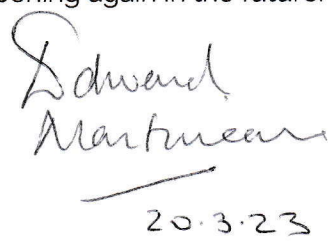 ening again in the future.
Edward
Martineau
20.3.23